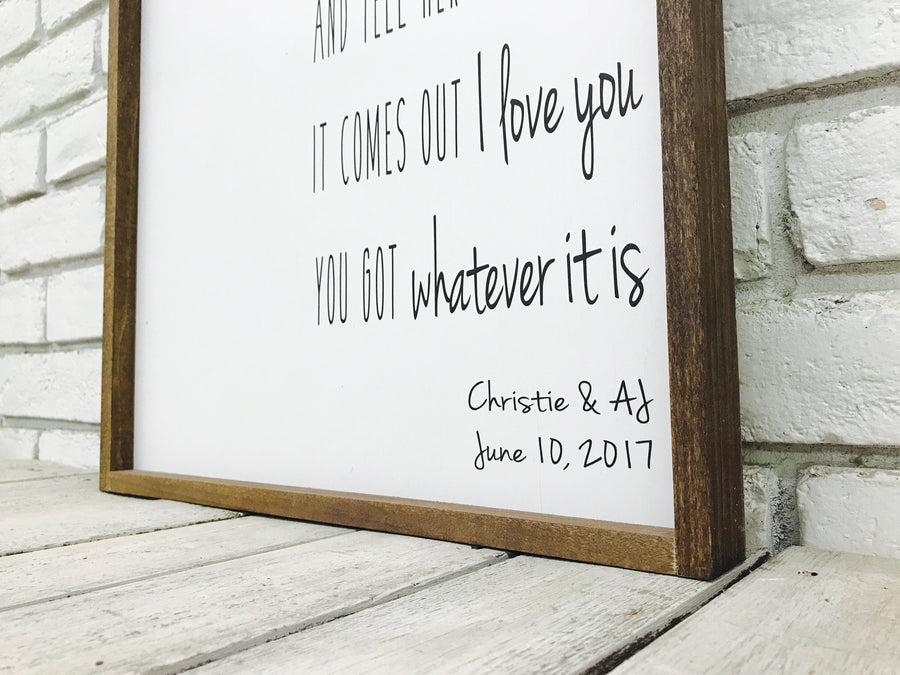 AND TELL HER
IT COMES OUT I love you
YOU GOT whatever it is
Christie & AJ
June 10, 2017